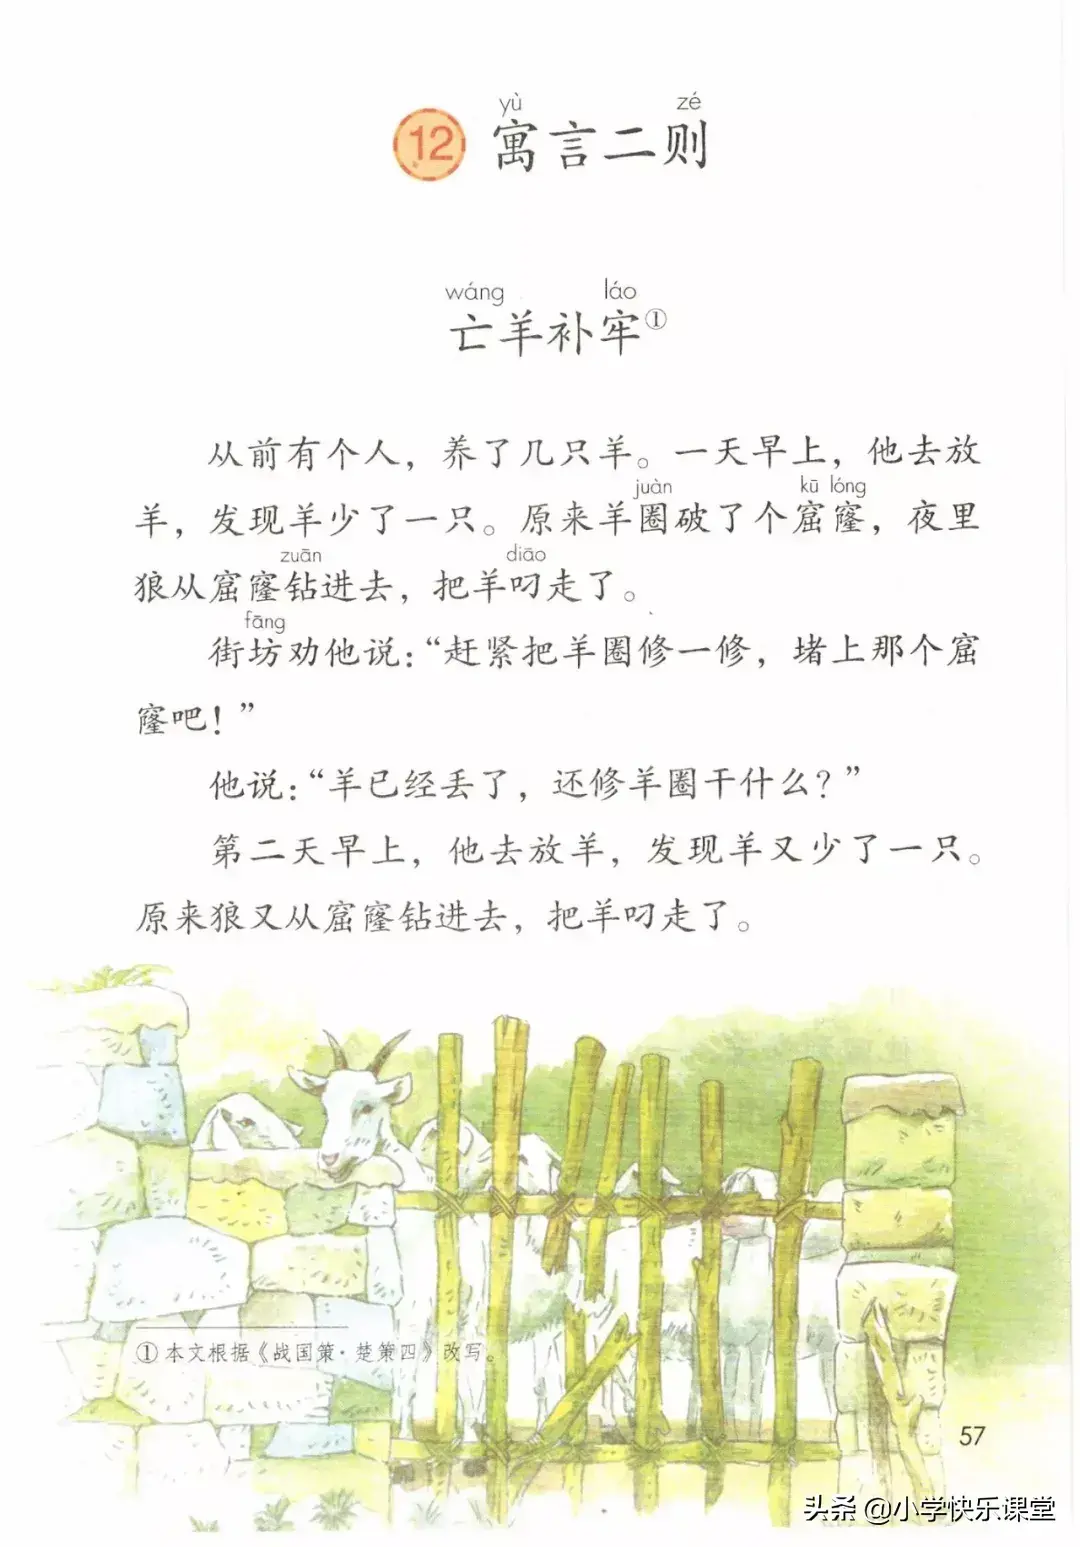 yù zé
12 寓言二则
wáng láo
亡羊补牢①
从前有个人，养了几只羊。一天早上，他去放
juàn kū lóng
羊，发现羊少了一只。原来羊圈破了个窟窿，夜里
zuān diāo
狼从窟窿钻进去，把羊叼走了。
fāng
街坊劝他说：“赶紧把羊圈修一修，堵上那个窟
窿吧！”
他说：“羊已经丢了，还修羊圈干什么？”
第二天早上，他去放羊，发现羊又少了一只。
原来狼又从窟窿钻进去，把羊叼走了。
①本文根据《战国策·楚策四》改写。
57
头条 @小学快乐课堂